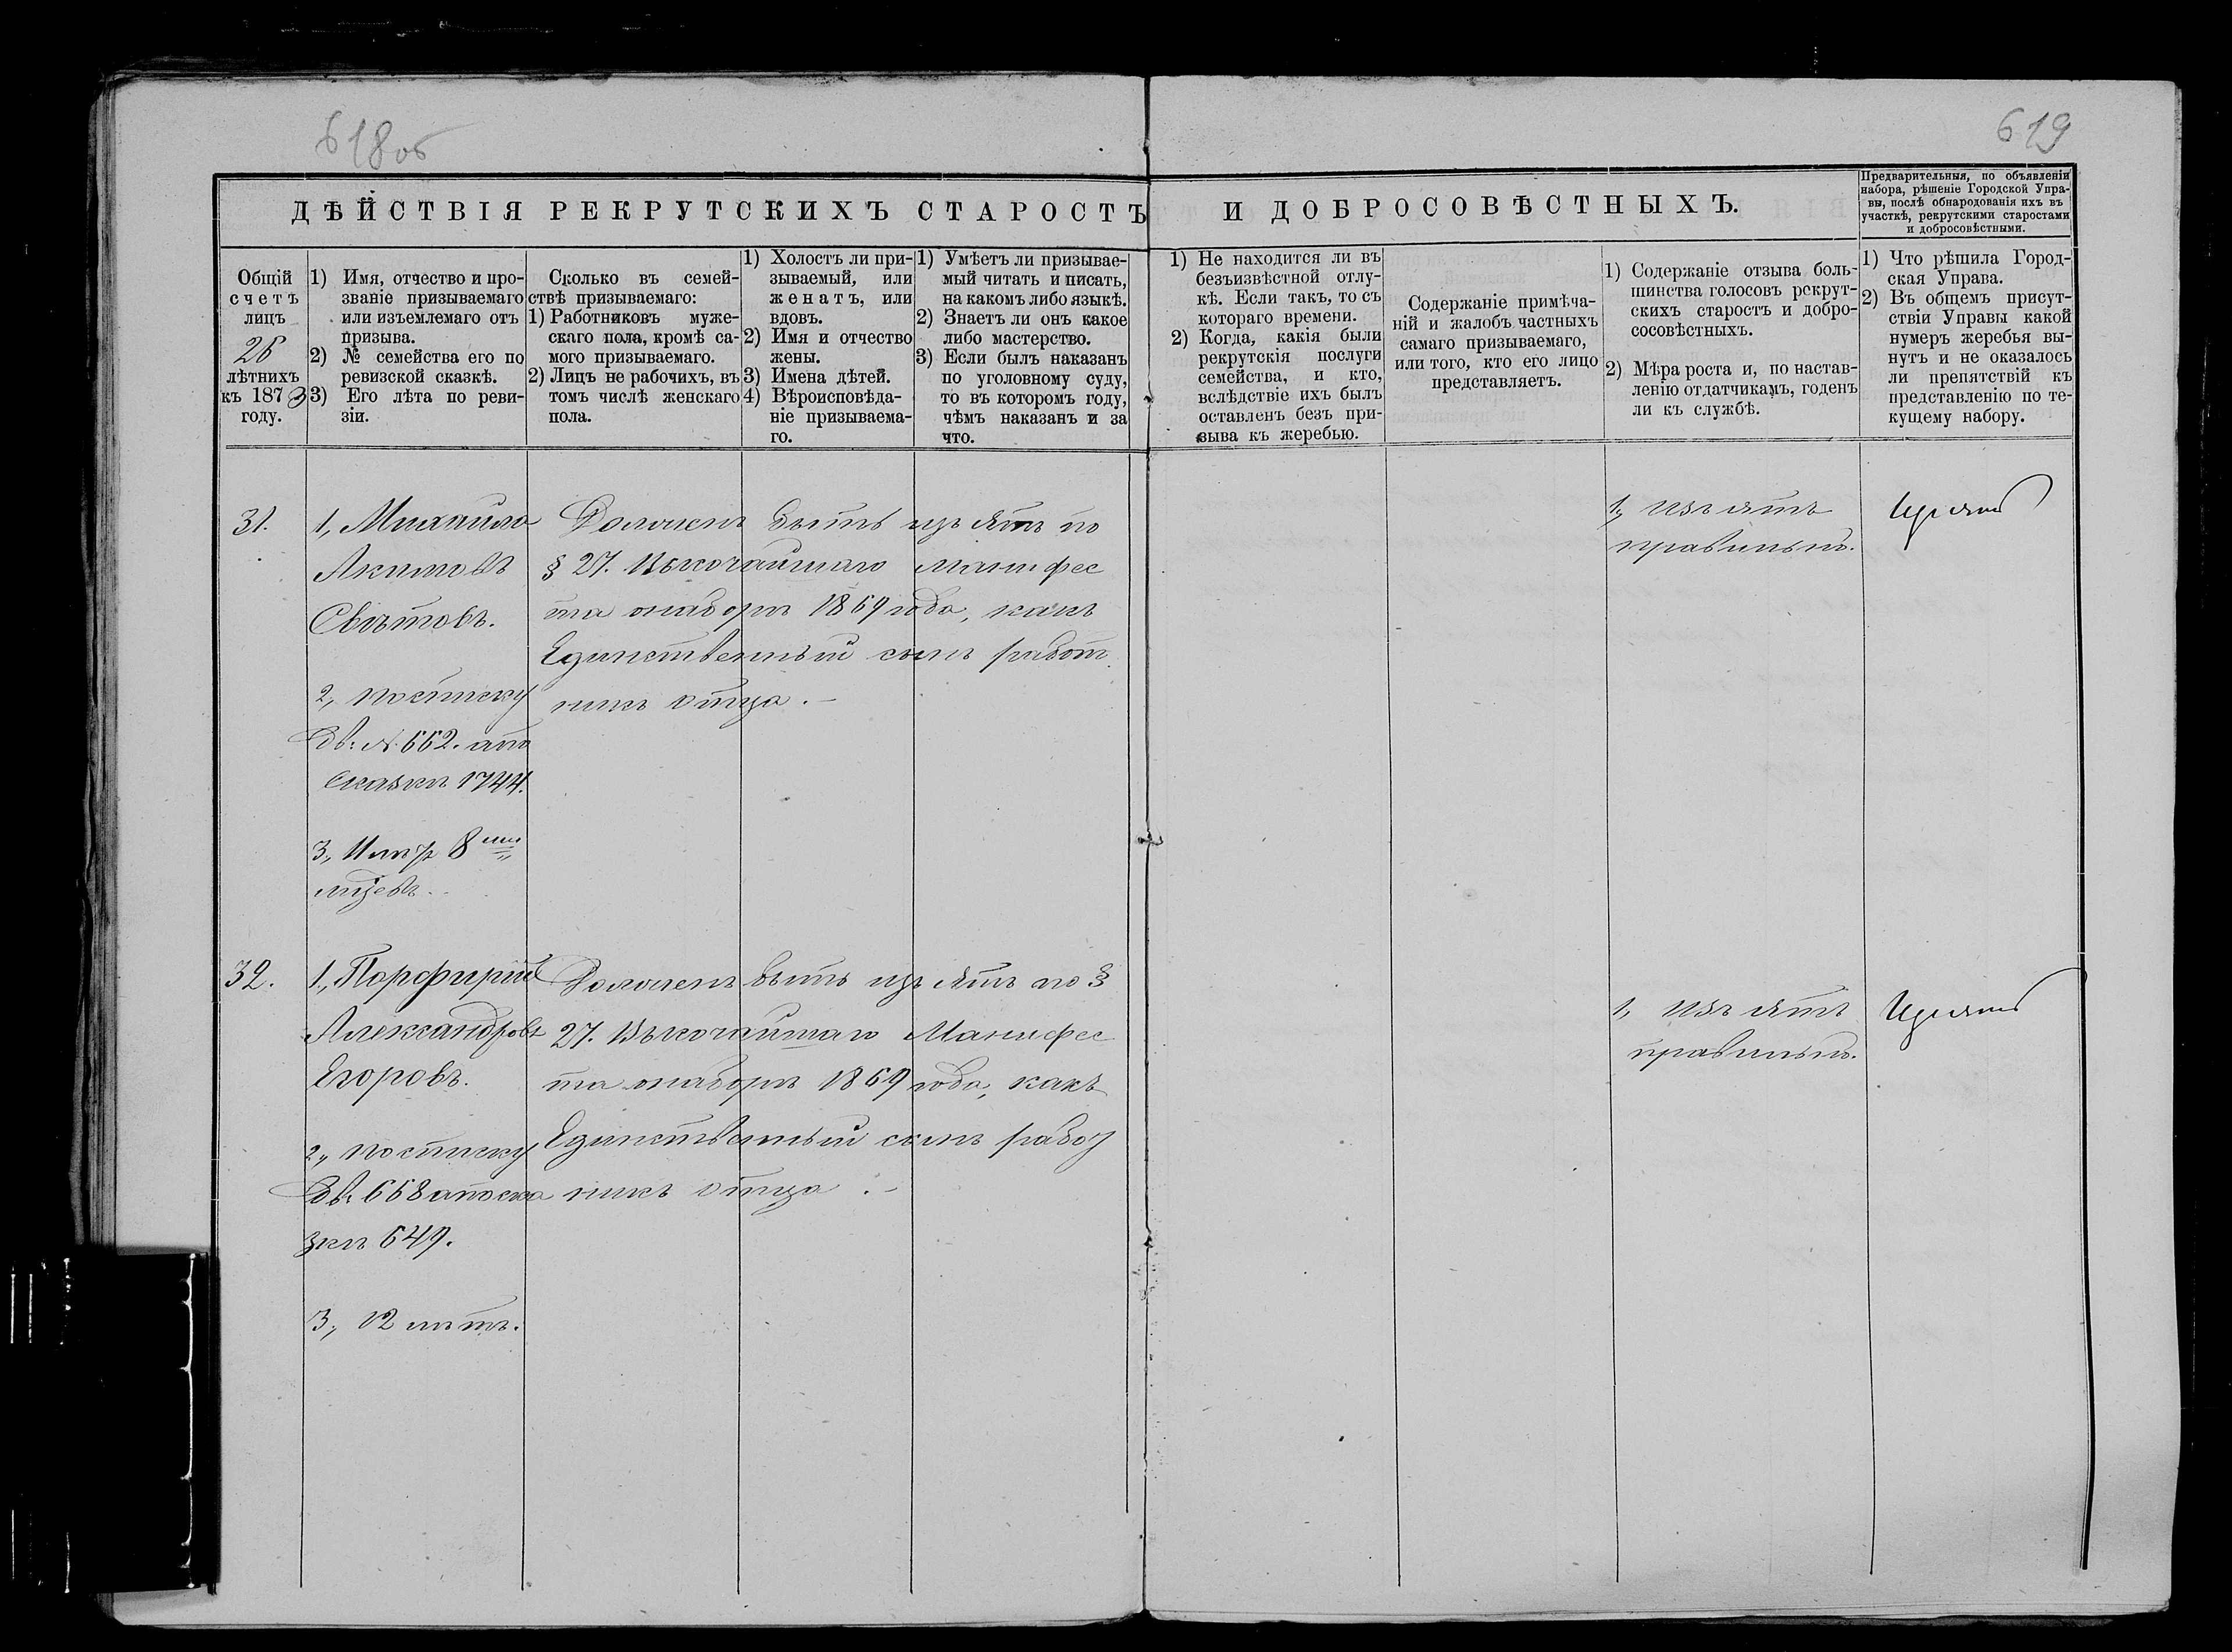 618об
619
ДѢЙСТВІЯ РЕКРУТСКИХЪ СТАРОСТЪ И ДОБРОСОВѢСТНЫХЪ.
Предварительныя, по объявленіи
набора, рѣшеніе Городской Упра-
вы, послѣ обнародованія ихъ въ
участкѣ, рекрутскими старостами
и добросовѣстными.
Общій
счетъ
лицъ
26
лѣтнихъ
къ 1873
году.
1) Имя, отчество и про-
званіе призываемаго
или изъемлемаго отъ
призыва.
2) № семейства его по
ревизской сказкѣ.
3) Его лѣта по реви-
зіи.
Сколько въ семей-
ствѣ призываемаго:
1) Работниковъ муже-
скаго пола, кромѣ са-
мого призываемаго.
2) Лицъ не рабочихъ, въ
томъ числѣ женскаго
пола.
1) Холостъ ли при-
зываемый, или
женатъ, или
вдовъ.
2) Имя и отчество
жены.
3) Имена дѣтей.
4) Вѣроисповѣда-
ніе призываема-
го.
1) Умѣетъ ли призывае-
мый читать и писать,
на какомъ либо языкѣ.
2) Знаетъ ли онъ какое
либо мастерство.
3) Если былъ наказанъ
по уголовному суду,
то въ которомъ году,
чѣмъ наказанъ и за
что.
1) Не находится ли въ
безъизвѣстной отлу-
кѣ. Если такъ, то съ
котораго времени.
2) Когда, какія были
рекрутскія послуги
семейства, и кто,
вслѣдствіе ихъ былъ
оставленъ безъ при-
зыва къ жеребью.
Содержаніе примѣча-
ній и жалобъ частныхъ
самаго призываемаго,
или того, кто его лицо
представляетъ.
1) Содержаніе отзыва боль-
шинства голосовъ рекрут-
скихъ старостъ и добро-
совѣстныхъ.
2) Мѣра роста и, по настав-
ленію отдатчикамъ, годенъ
ли къ службѣ.
1) Что рѣшила Город-
ская Управа.
2) Въ общемъ присут-
ствіи Управы какой
нумеръ жеребья вы-
нутъ и не оказалось
ли препятствій къ
представленію по те-
кущему набору.
31.
1, Михаило
Акимовъ
Свѣтовъ.
2, по списку
дв: № 662. а по
сказкѣ 1744.
3, 8
Долженъ быть изъятъ по
§ 27. Высочайшаго Манифес
та о наборѣ 1869 года, какъ
Единственный сынъ работ
никъ отца.–
1, изъятъ
правильно.
Изъятъ
32.
1, Порфирій
Александровъ
Егоровъ.
2, по списку
дв: 668 а по ска
зкѣ 649.
3, 12 лѣтъ.
Долженъ быть изъятъ по §
27. Высочайшаго Манифес
та о наборѣ 1869 года, какъ
Единственный сынъ работ
никъ отца.–
1, изъятъ
правильно.
Изъятъ